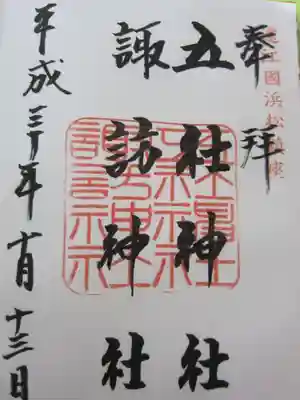 奉拝
江國浜松
五社神社
諏訪神社
平成三十年十月十三日